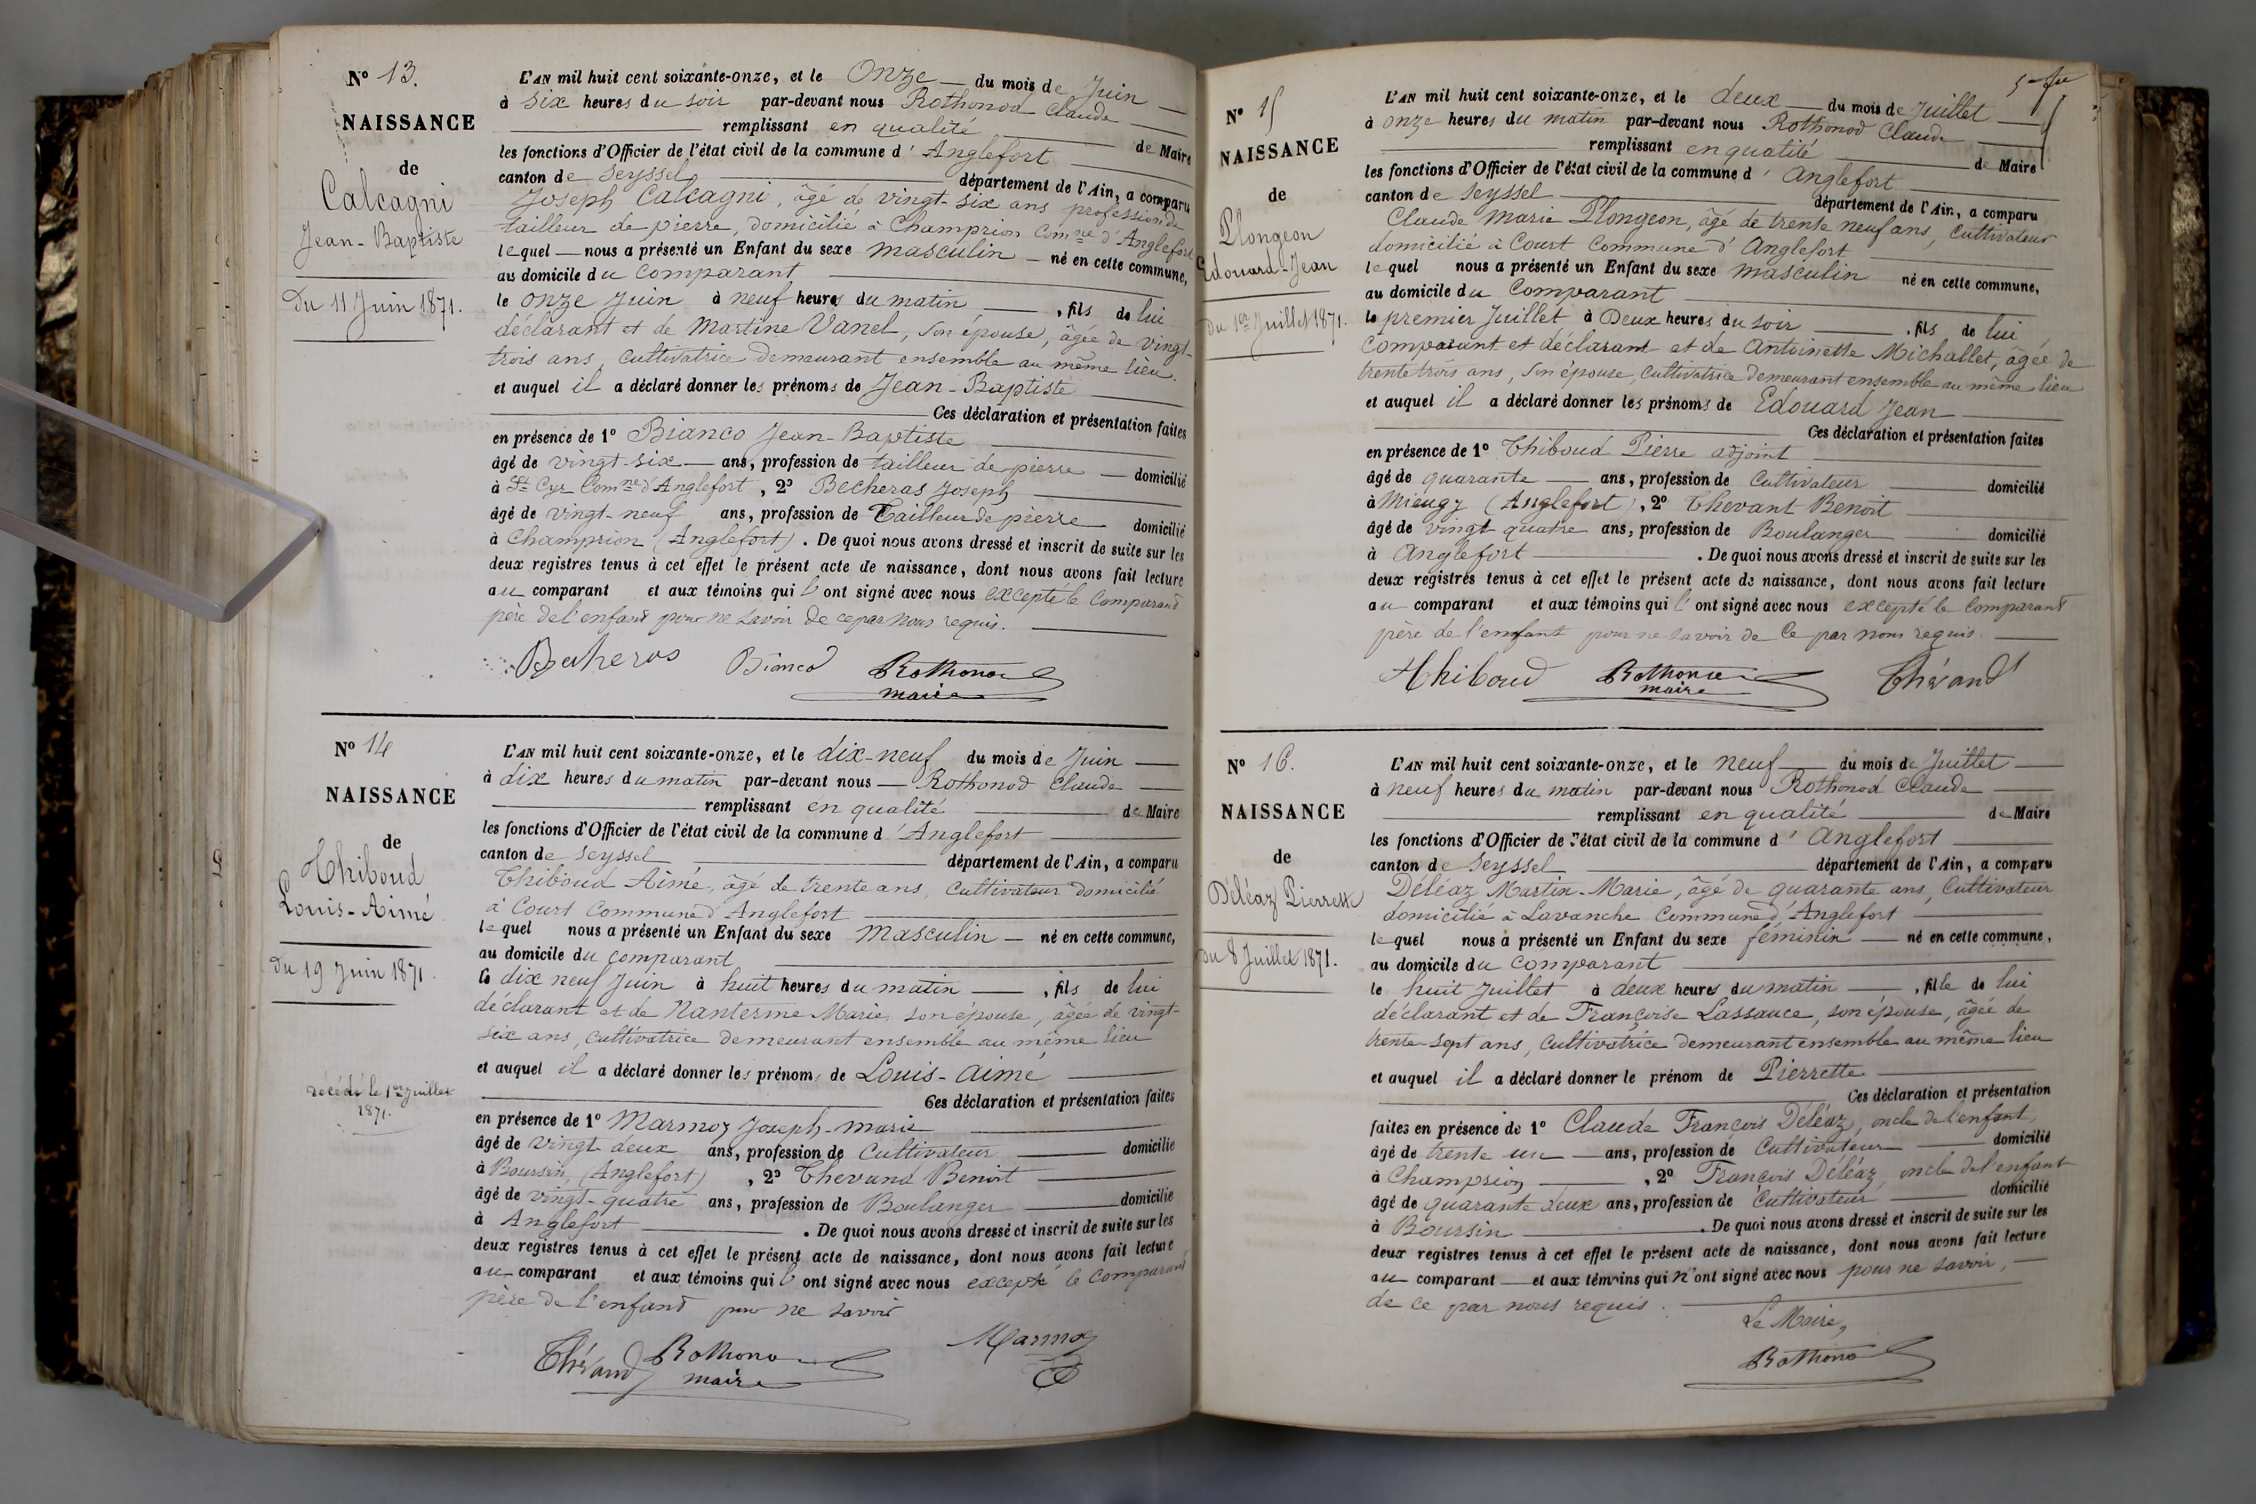 N° 13.
NAISSANCE
de
Calcagni
Jean-Baptiste
Du 11 Juin 1871.
L'AN mil huit cent soixante-onze, et le Onze du mois de Juin
à six heures du soir par-devant nous Rothonod Claude
remplissant en qualité de Maire
les fonctions d'Officier de l'état civil de la commune d'Anglefort
canton de Seyssel département de l'Ain, a comparu
Joseph Calcagni, âgé de vingt-six ans profession de
tailleur de pierre, domicilié à Champrion Comne d'Anglefort
lequel nous a présenté un Enfant du sexe masculin né en cette commune,
au domicile du comparant
le onze Juin à neuf heures du matin, fils de lui
déclarant et de Martine Vanel, son épouse, âgée de vingt-
trois ans, cultivatrice demeurant ensemble au même lieu.
et auquel il a déclaré donner les prénoms de Jean-Baptiste
Ces déclaration et présentation faites
en présence de 1° Bianco Jean-Baptiste
âgé de vingt-six ans, profession de tailleur de pierre domicilié
à St Cyr Comne d'Anglefort, 2° Becheras Joseph
âgé de vingt-neuf ans, profession de Tailleur de pierre domicilié
à Champrion (Anglefort). De quoi nous avons dressé et inscrit de suite sur les
deux registres tenus à cet effet le présent acte de naissance, dont nous avons fait lecture
au comparant et aux témoins qui l'ont signé avec nous excepté le Comparant
père de l'enfant pour ne savoir de ce par nous requis.
Becheras Bianco Rothonod
maire
N° 14
NAISSANCE
de
Thiboud
Louis-Aimé
du 19 Juin 1871.
décédé le 1er Juillet
1871.
L'AN mil huit cent soixante-onze, et le dix-neuf du mois de Juin
à dix heures du matin par-devant nous Rothonod Claude
remplissant en qualité de Maire
les fonctions d'Officier de l'état civil de la commune d'Anglefort
canton de Seyssel département de l'Ain, a comparu
Thiboud Aimé, âgé de trente ans, Cultivateur domicilié
à Court Commune d'Anglefort
lequel nous a présenté un Enfant du sexe Masculin né en cette commune,
au domicile du comparant
le dix neuf Juin à huit heures du matin, fils de lui
déclarant et de Nanterme Marie son épouse, âgée de vingt-
six ans, cultivatrice demeurant ensemble au même lieu
et auquel il a déclaré donner les prénoms de Louis-Aimé
Ces déclaration et présentation faites
en présence de 1° Marmoz Joseph-Marie
âgé de vingt deux ans, profession de Cultivateur domicilié
à Boursin, (Anglefort), 2° Thevand Benoit
âgé de vingt-quatre ans, profession de Boulanger domicilié
à Anglefort. De quoi nous avons dressé et inscrit de suite sur les
deux registres tenus à cet effet le présent acte de naissance, dont nous avons fait lecture
au comparant et aux témoins qui l'ont signé avec nous excepté le Comparant
père de l'enfant pour ne savoir
Thévand Rothonod Marmoz
maire
N° 15
NAISSANCE
de
Plongeon
Edouard-Jean
du 1er Juillet 1871.
L'AN mil huit cent soixante-onze, et le deux du mois de Juillet
à onze heures du matin par-devant nous Rothonod Claude
remplissant en qualité de Maire
les fonctions d'Officier de l'état civil de la commune d'Anglefort
canton de Seyssel département de l'Ain, a comparu
Claude Marie Plongeon, âgé de trente neuf ans, cultivateur
domicilié à Court Commune d'Anglefort
lequel nous a présenté un Enfant du sexe masculin né en cette commune,
au domicile du Comparant
le premier Juillet à Deux heures du soir, fils de lui
Comparant et déclarant et de Antoinette Michallet, âgée de
trente trois ans, son épouse, cultivatrice demeurant ensemble au même lieu
et auquel il a déclaré donner les prénoms de Edouard Jean
Ces déclaration et présentation faites
en présence de 1° Thiboud Pierre adjoint
âgé de quarante ans, profession de Cultivateur domicilié
à Mieugy (Anglefort), 2° Thevant Benoit
âgé de vingt quatre ans, profession de Boulanger domicilié
à Anglefort. De quoi nous avons dressé et inscrit de suite sur les
deux registres tenus à cet effet le présent acte de naissance, dont nous avons fait lecture
au comparant et aux témoins qui l'ont signé avec nous excepté le Comparant
père de l'enfant pour ne savoir de Ce par nous requis.
Thiboud Rothonod Thévand
maire
N° 16.
NAISSANCE
de
Déléaz Pierrette
Du 8 Juillet 1871.
L'AN mil huit cent soixante-onze, et le neuf du mois de Juillet
à neuf heures du matin par-devant nous Rothonod Claude
remplissant en qualité de Maire
les fonctions d'Officier de l'état civil de la commune d'Anglefort
canton de Seyssel département de l'Ain, a comparu
Déléaz Martin-Marie, âgé de quarante ans, Cultivateur
domicilié à Lavanche Commune d'Anglefort
lequel nous a présenté un Enfant du sexe féminin né en cette commune,
au domicile du comparant
le huit Juillet à deux heures du matin, fille de lui
déclarant et de Françoise Lassauce, son épouse, âgée de
trente-sept ans, cultivatrice demeurant ensemble au même lieu
et auquel il a déclaré donner le prénom de Pierrette
Ces déclaration et présentation
faites en présence de 1° Claude François Déléaz, oncle de l'enfant
âgé de trente un ans, profession de Cultivateur domicilié
à Champrion, 2° François Déléaz, oncle de l'enfant
âgé de quarante deux ans, profession de Cultivateur domicilié
à Boursin. De quoi nous avons dressé et inscrit de suite sur les
deux registres tenus à cet effet le présent acte de naissance, dont nous avons fait lecture
au comparant et aux témoins qui n'ont signé avec nous pour ne savoir,
de ce par nous requis.
Le Maire,
Rothonod